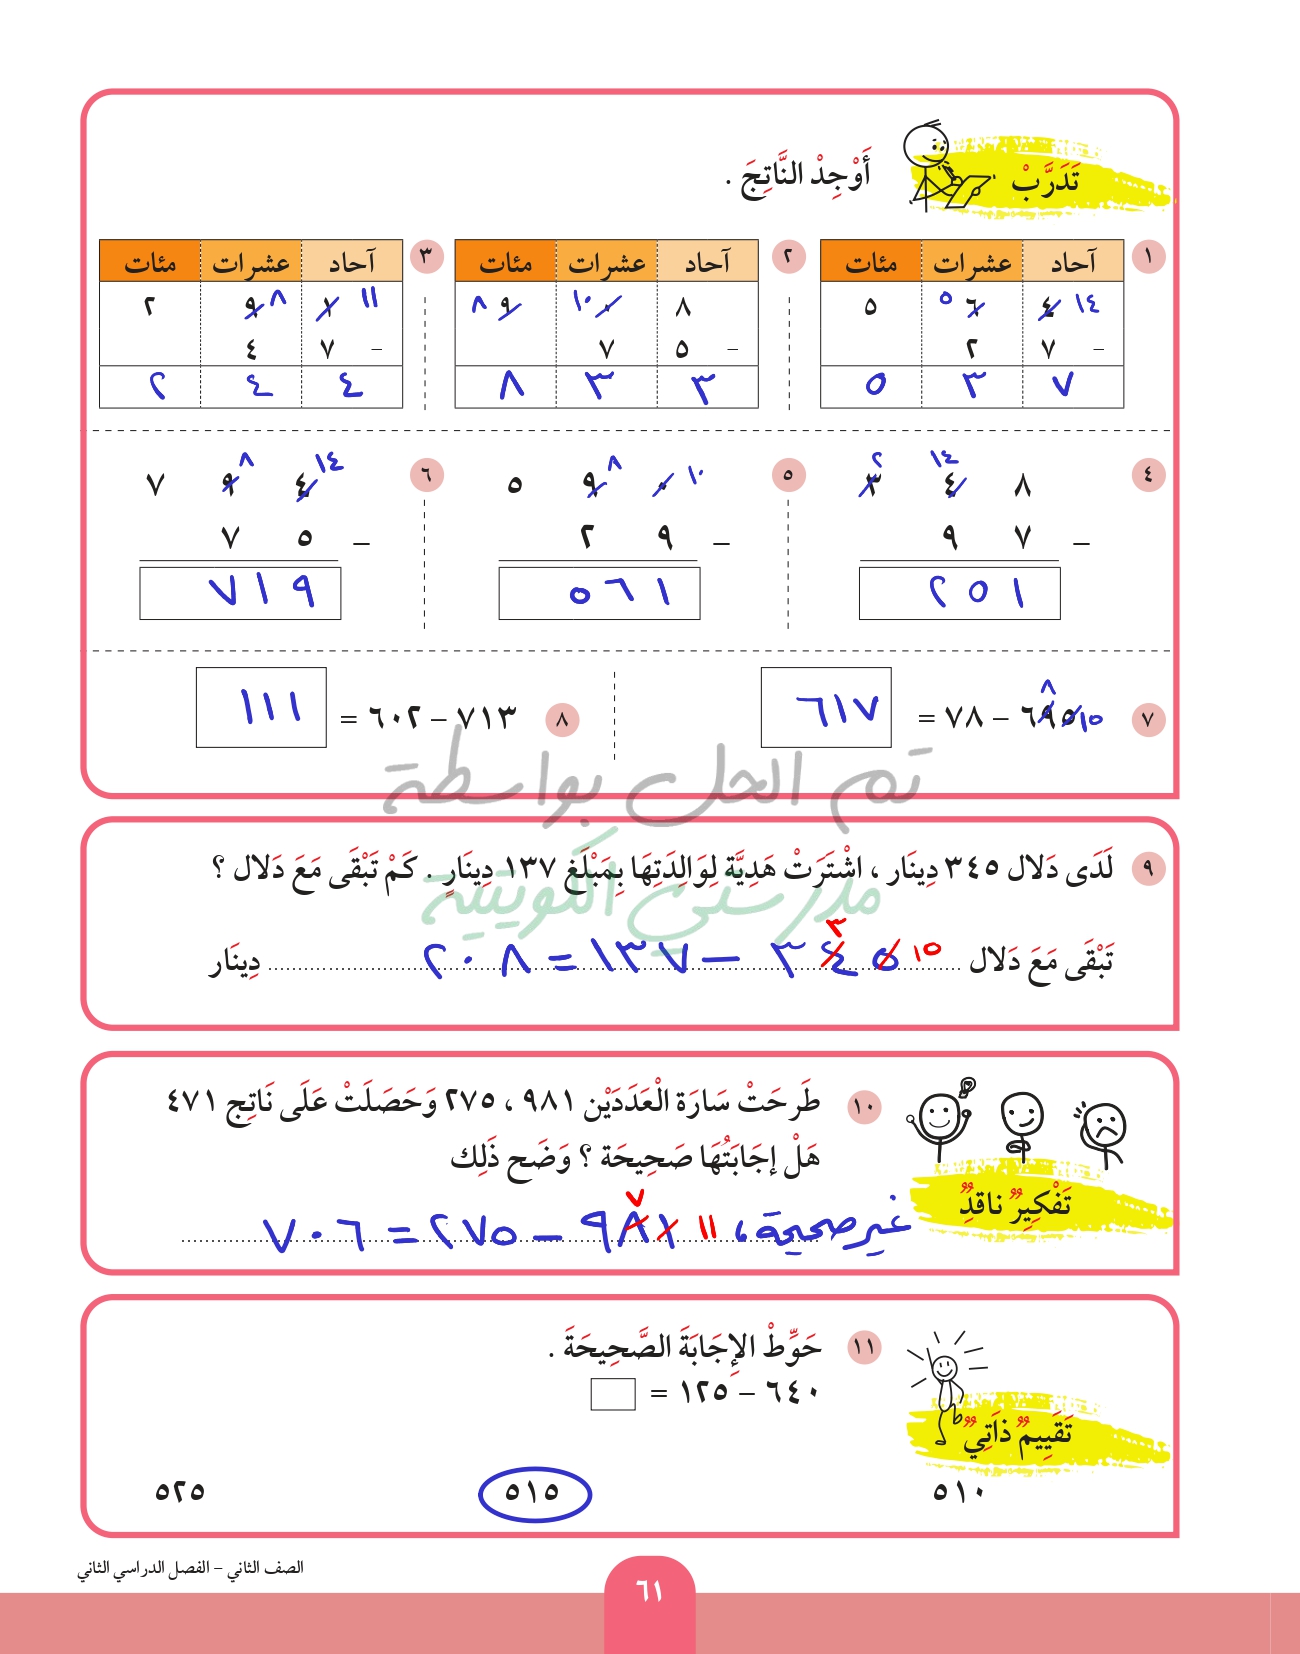 تَدَرَّبْ
أَوْجِدْ النَّاتِجَ .
١
آحاد عشرات مئات
٥ ٦ ٥ ٤ ١٤
– ٧ ٢
٥ ٣ ٧
٢
آحاد عشرات مئات
٨ ٩ ١٠ ٠ ٨
– ٥ ٧
٨ ٣ ٣
٣
آحاد عشرات مئات
٢ ٩ ٨ ١ ١١
– ٧ ٤
٢ ٤ ٤
٤
٢ ١٤
٣ ٤ ٨
– ٩ ٧
٢٥١
٥
٨ ١٠
٥ ٩ ٠
– ٢ ٩
٥٦١
٦
٨ ١٤
٧ ٩ ٤
– ٧ ٥
٧١٩
٧
٨ ١٥
٦٩٥ – ٧٨ = ٦١٧
٨
٧١٣ – ٦٠٢ = ١١١
تم الحل بواسطة
مدرستي الكويتية
٩
لَدَى دَلال ٣٤٥ دِينَار ، اشْتَرَتْ هَدِيَّة لِوَالِدَتِهَا بِمَبْلَغ ١٣٧ دِينَارٍ . كَمْ تَبْقَى مَعَ دَلال ؟
٣ ١٥
تَبْقَى مَعَ دَلال ٣٤٥ – ١٣٧ = ٢٠٨ دِينَار
تَفْكِيرٌ ناقدٌ
١٠
طَرحَتْ سَارَة الْعَدَدَيْن ٩٨١ ، ٢٧٥ وَحَصَلَتْ عَلَى نَاتِج ٤٧١
هَلْ إجَابَتُهَا صَحِيحَة ؟ وَضَح ذَلِك
٧ ١١
غير صحيحة، ٩٨١ – ٢٧٥ = ٧٠٦
تَقَيِيمٌ ذاَتِيٌ
١١
حَوِّطْ الإِجَابَةَ الصَّحِيحَةَ .
٦٤٠ – ١٢٥ =
٥١٠ ٥١٥ ٥٢٥
الصف الثاني – الفصل الدراسي الثاني
٦١